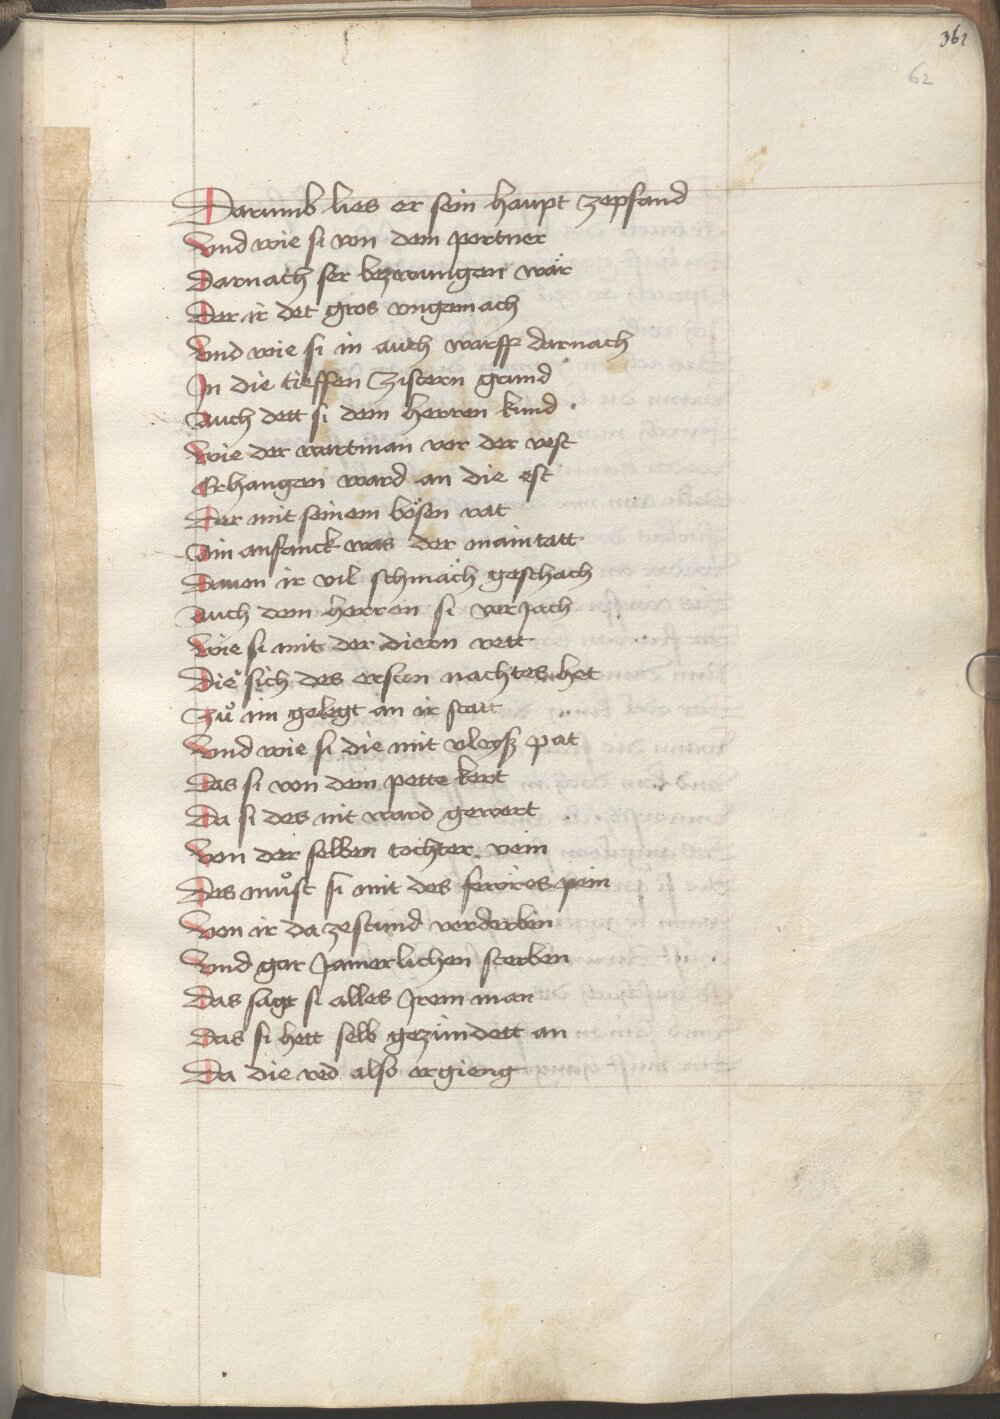 361
62
Darumb lies er sein haupt zepfand
Vnd wie si von dem portner
Darnach ser bezwungen wär
Der ir det gros vngemach
Vnd wie si in auch warff darnach
In die tieffen zistern grund
Auch dett si dem herren kund
Wie der wartman vor der vest
Erhangen ward an die est
Der mit seinem bösen rat
Ain anfanck was der maintatt
Dauon ir vil schmäch geschach
Auch dem herren si verjach
Wie si mit der diern rett
Die sich des ersten nachtes het
Zuͦ im gelegt an ir statt
Vnd wie si die mit vleysz pat
Das si von dem pette kert
Da si des nit ward gewert
Von der selben tochter vein
Des muͦst si mit des feẅres pein
Von ir da zestund verderben
Vnd gar Jamerlichen sterben
Das sagt si alles Jrem man
Das si hett selb gezündett an
Da die red also ergieng